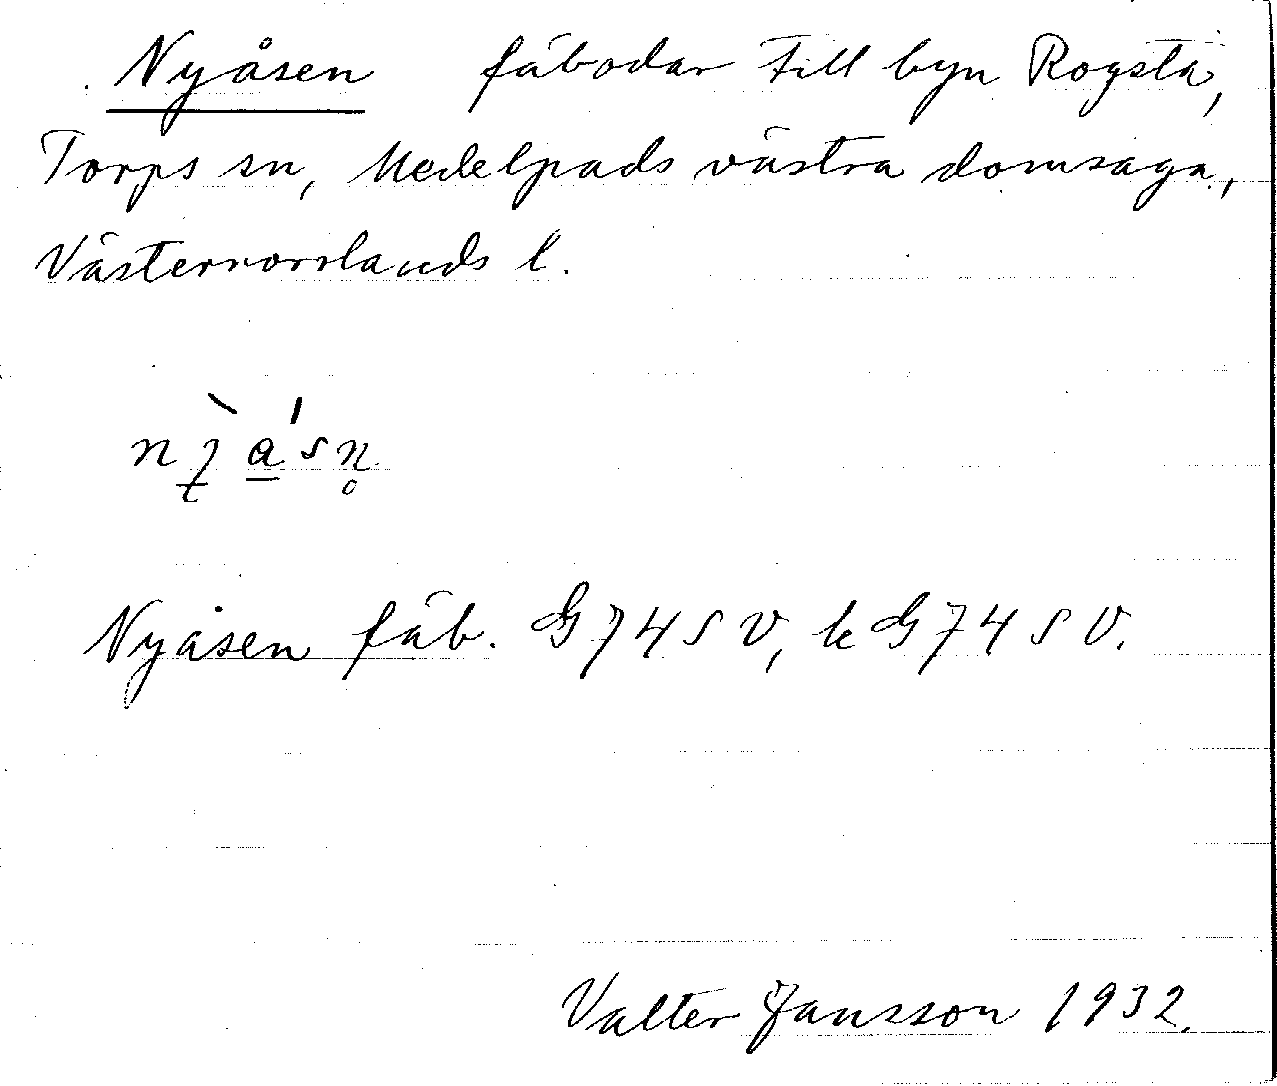 Nyåsen fäbodar till byn Rogsta,
Torps sn, Medelpads västra domsaga,
Västernorrlands l.
Nyåsen fäb. G 74 SV, k G 74 SV.
Valter Jansson 1932.